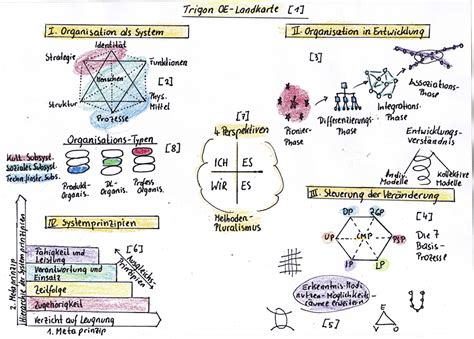 Trigon OE-Landkarte [1]
I. Organisation als System
Identität
Strategie
Funktionen
Menschen
[2]
Struktur
Phys. Mittel
Prozesse
Organisations-Typen
[8]
Kult. Subsyst.
Soziales Subsyst.
Techn./instr. Subs.
Produkt-Organis.
DL-Organis.
Profess. Organis.
IV. Systemprinzipien
[6]
Fähigkeit und Leistung
Verantwortung und Einsatz
Zeitfolge
Zugehörigkeit
Verzicht auf Leugnung
1. Metaprinzip
2. Metaprinzip
Hierarchie der Systemprinzipien
Ausgleichs-Prinzipien
[7]
4 Perspektiven
ICH
ES
WIR
ES
Methoden-Pluralismus
II. Organisation in Entwicklung
[3]
Pionier-Phase
Differenzierungs-Phase
Integrations-Phase
Assoziations-Phase
Entwicklungs-verständnis
Indiv. Modelle
Kollektive Modelle
III. Steuerung der Veränderung
DP
ZGP
[4]
UP
CMP
PSP
Die 7 Basis-Prozesse
IP
LP
Erkenntnis-Modi nutzen - Möglichkeits-räume erweitern
[5]
V
E